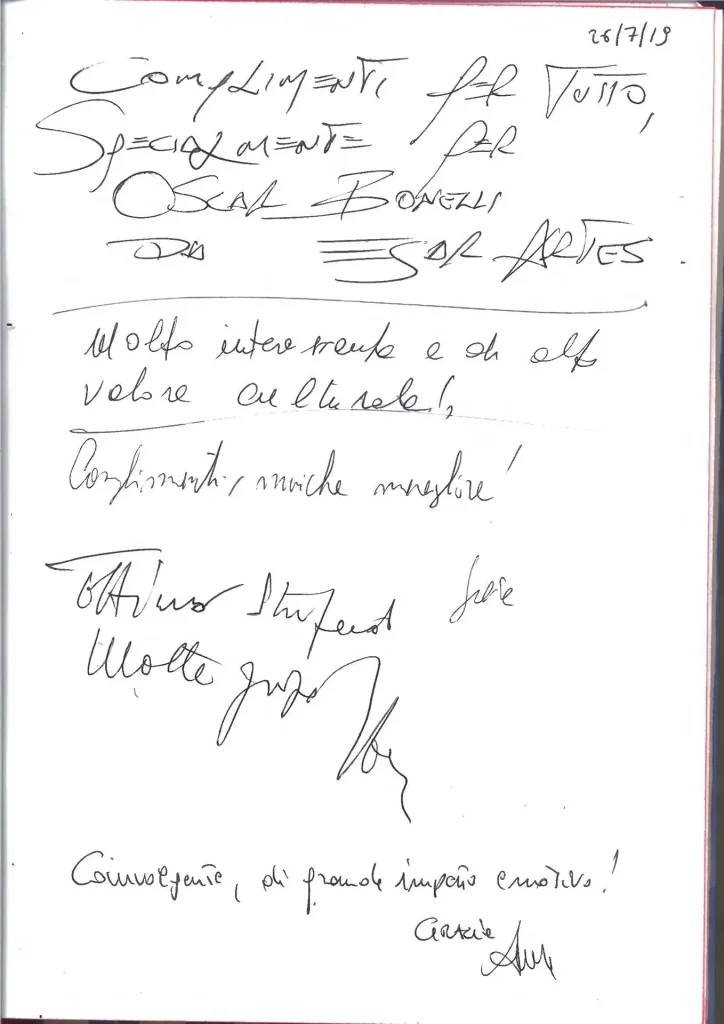 26/7/19
COMPLIMENTI PER TUTTO,
SPECIALMENTE PER
OSCAR BONELLI
DA ESAR ARTES.
Molto interessante e di alto
valore culturale!
Complimenti, musiche meravigliose!
Ottimo Stupendo
Grazie
Molte grazie
Coinvolgente, di grande impatto emotivo!
Grazie